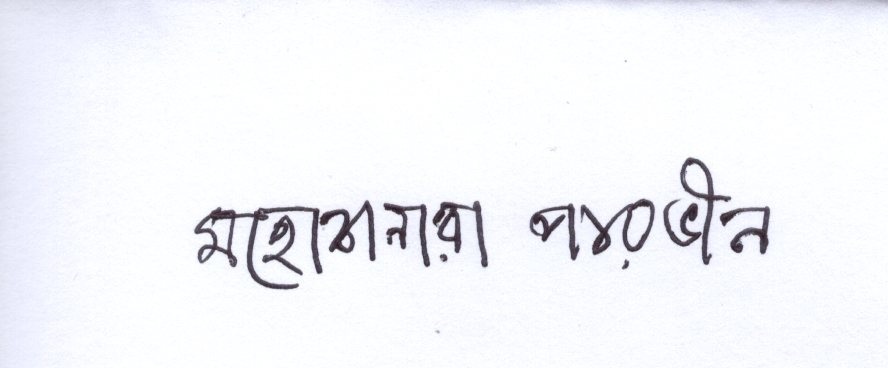 মহোশনারা পারভীন